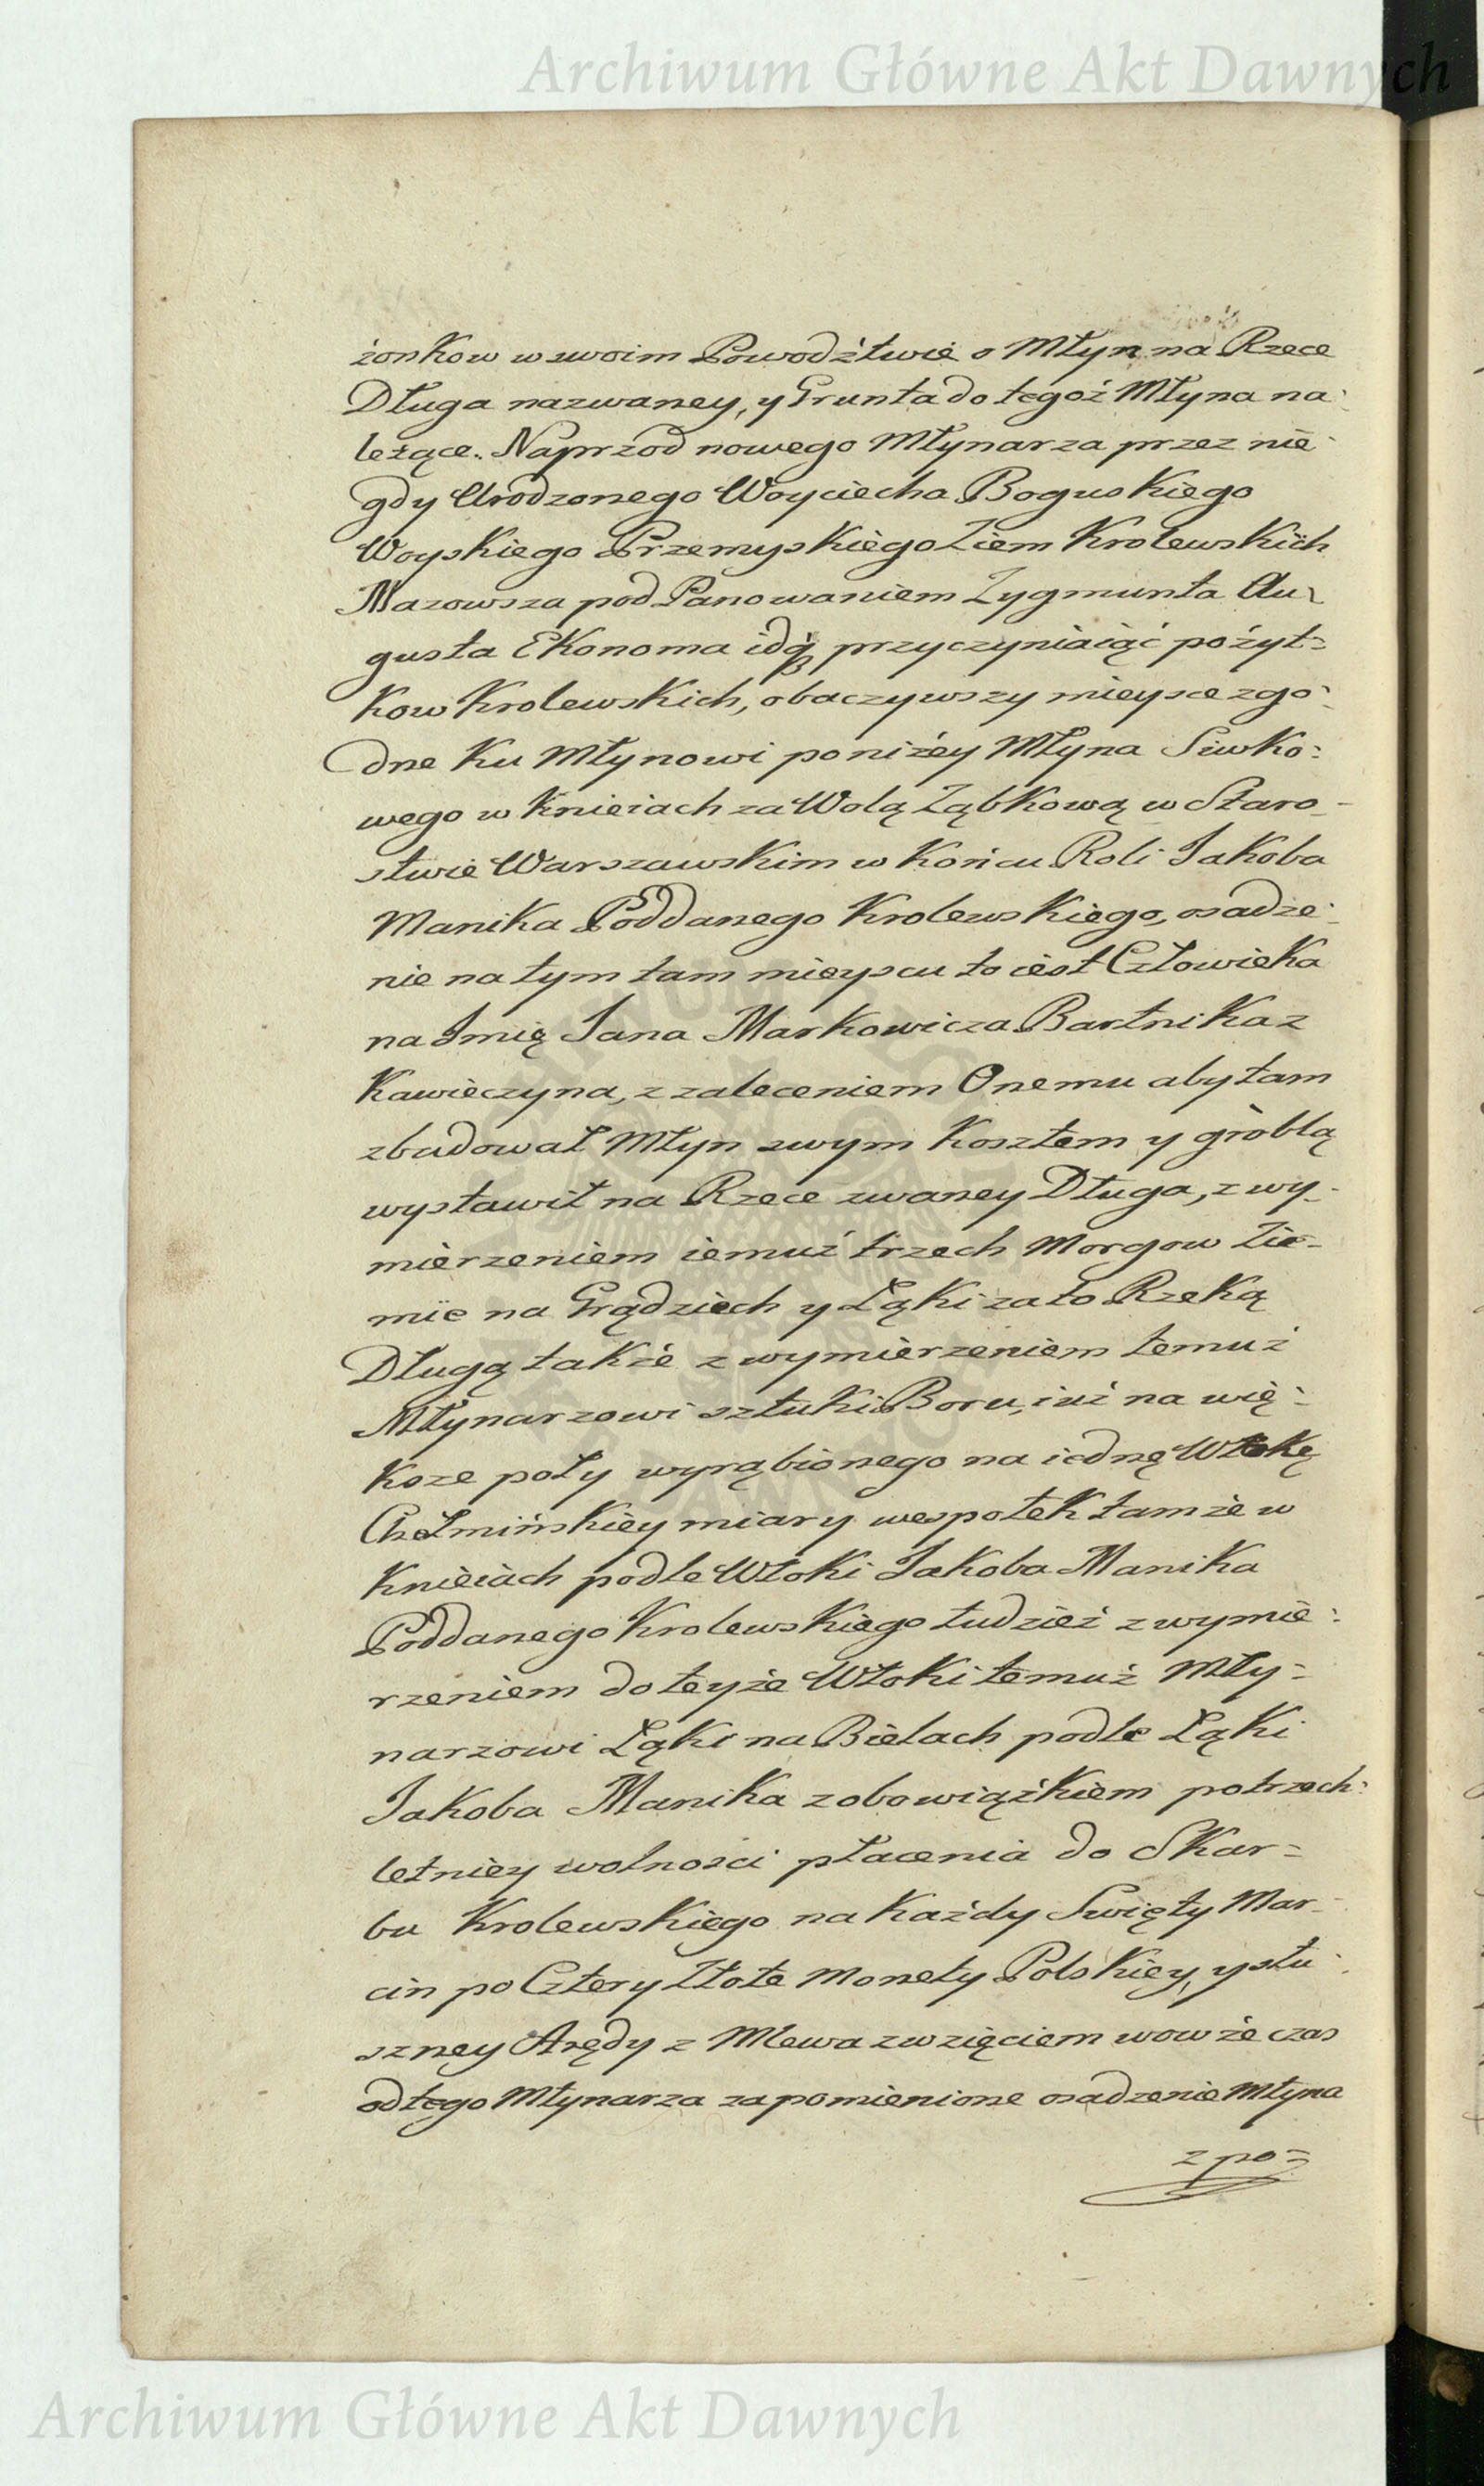 Archiwum Główne Akt Dawnych
żonkow w swoim Powodźtwie o Młyn na Rzece
Długa nazwaney, y Grunta do tegoż Młyna na:
leżące. Naprzod nowego Młynarza przez nie:
gdy Urodzonego Woyciecha Boguskiego
Woyskiego Przemyskiego Ziem Krolewskich
Mazowsza pod Panowaniem Zygmunta Au:
gusta Ekonoma idq przyczyniaiąć pożyt=
kow Krolewskich, obaczywszy mieysce zgo:
dne ku Młynowi poniżey Młyna Siwko:
wego w Knieiach za Wolą Ząbkową w Staro-
stwie Warszawskim w Końcu Roli Jakoba
Manika Poddanego Krolewskiego, osadze:
nie na tym tam mieyscu to iest Człowieka
na Jmię Jana Markowicza Bartnika z
Kawieczyna, z zaleceniem Onemu aby tam
zbudował Młyn swym Kosztem y groblą
wystawił na Rzece zwaney Długa, z wy-
mierzeniem iemuż trzech Morgow Zie-
mie na Grądziech y Łąki za to Rzeką
Długą także z wymierzeniem temuż
Młynarzowi sztuki Boru, iuż na wię:
koze poły wyrąbionego na iednę Włokę
Chełmińskiey miary wespołek tamże w
Knieiach podle Włoki Jakoba Manika
Poddanego Krolewskiego tudzież z wymie:
rzeniem do teyże Włoki temuż Mły=
narzowi Łąki na Bielach podle Łąki
Jakoba Manika z obowiąźkiem po trzech:
letniey wolnosci płacenia do Skar=
bu Krolewskiego na Każdy Swięty Mar-
cin po Cztery Złote Monety Polskiey, y słu:
szney Arędy z Mlewa z wzięciem wowże czas
od tego Młynarza za pomienione osadzenie Młyna
z po=
Archiwum Główne Akt Dawnych